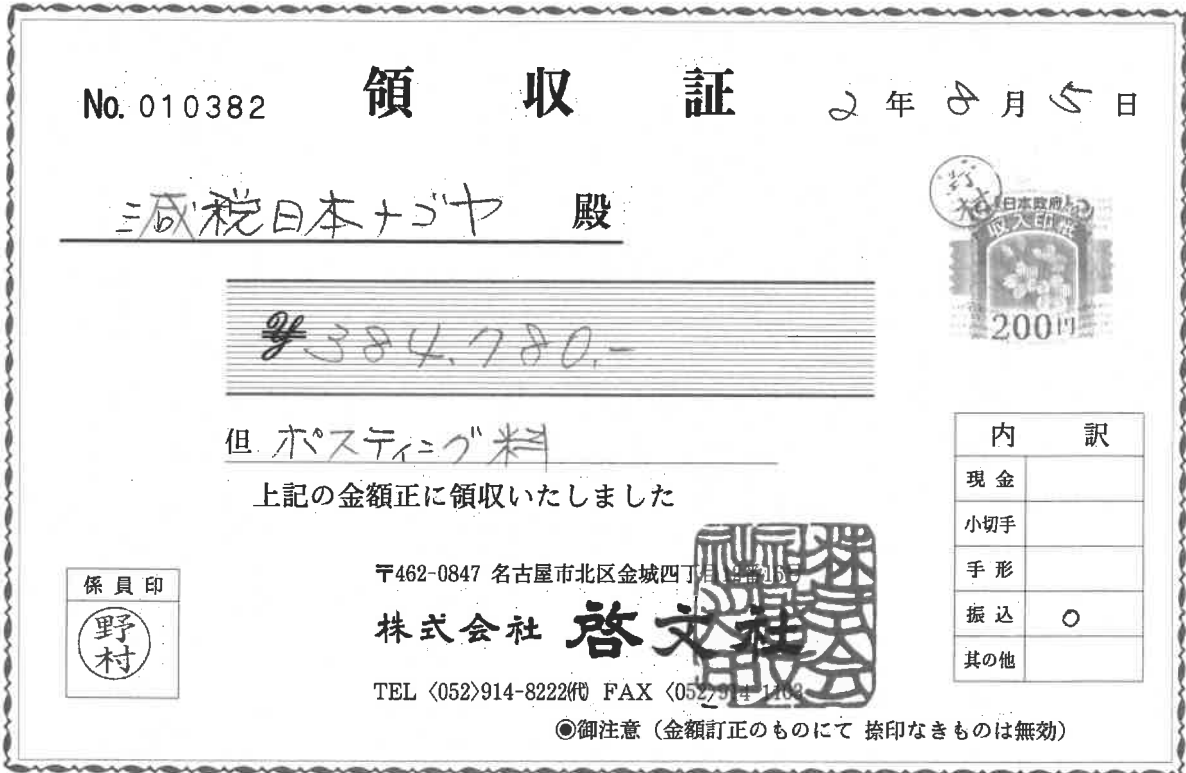 No. 010382 領収証 2年8月5日
減税日本ナゴヤ 殿
日本政府
収入印紙
200円
¥384,780.-
但 ポスティング料
上記の金額正に領収いたしました
内訳
現金
小切手
手形
振込 ○
其の他
係員印
野村
〒462-0847 名古屋市北区金城四丁目
株式会社 啓文社
TEL〈052〉914-8222㈹ FAX〈052〉914-1103
◉御注意(金額訂正のものにて 捺印なきものは無効)